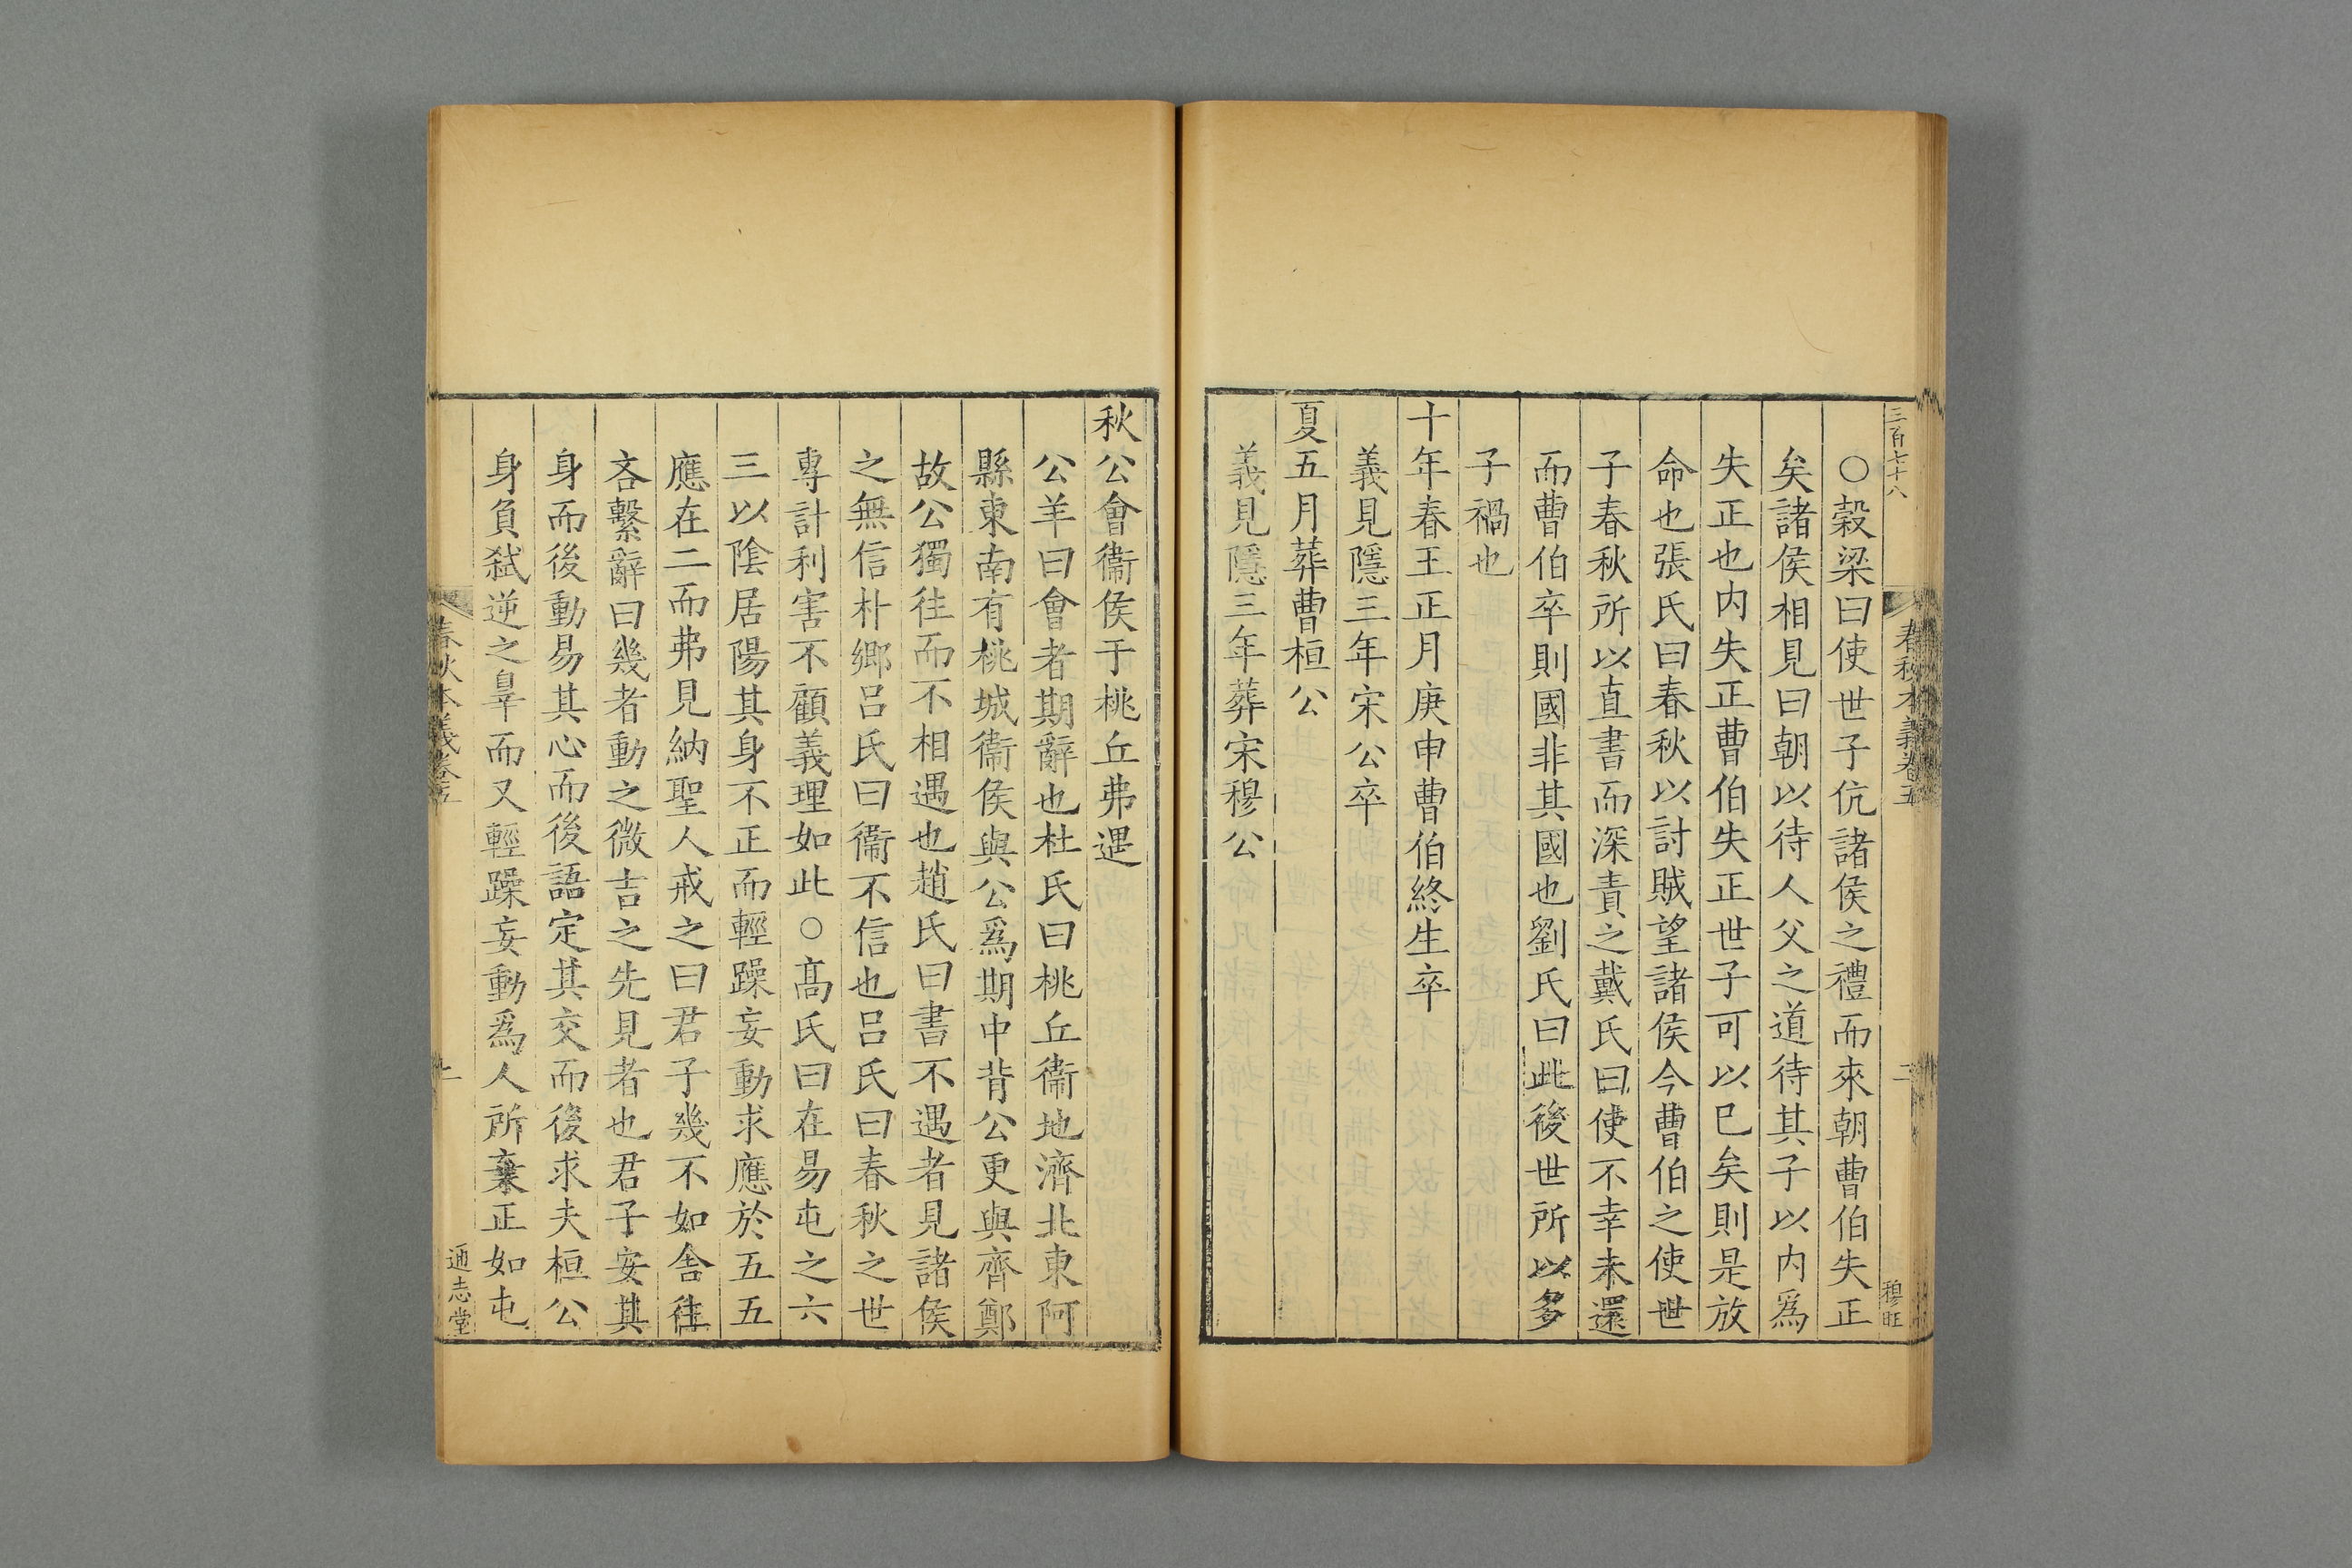 三百七十八
春秋本義卷五
二
穆旺
○榖梁曰使世子伉諸侯之禮而來朝曹伯失正
矣諸侯相見曰朝以待人父之道待其子以内爲
失正也内失正曹伯失正世子可以已矣則是放
命也張氏曰春秋以討賊望諸侯今曹伯之使世
子春秋所以直書而深責之戴氏曰使不幸未還
而曹伯卒則國非其國也劉氏曰此後世所以多
子禍也
十年春王正月庚申曹伯終生卒
義見隱三年宋公卒
夏五月葬曹桓公
義見隱三年葬宋穆公
秋公會衞侯于桃丘弗遇
公羊曰會者期辭也杜氏曰桃丘衞地濟北東阿
縣東南有桃城衞侯與公爲期中背公更與齊鄭
故公獨往而不相遇也趙氏曰書不遇者見諸侯
之無信朴鄉吕氏曰衞不信也吕氏曰春秋之世
專計利害不顧義理如此○髙氏曰在易屯之六
三以陰居陽其身不正而輕躁妄動求應於五五
應在二而弗見納聖人戒之曰君子幾不如舍往
吝繫辭曰幾者動之微吉之先見者也君子安其
身而後動易其心而後語定其交而後求夫桓公
身負弑逆之辠而又輕躁妄動爲人所棄正如屯
春秋本義卷五
通志堂